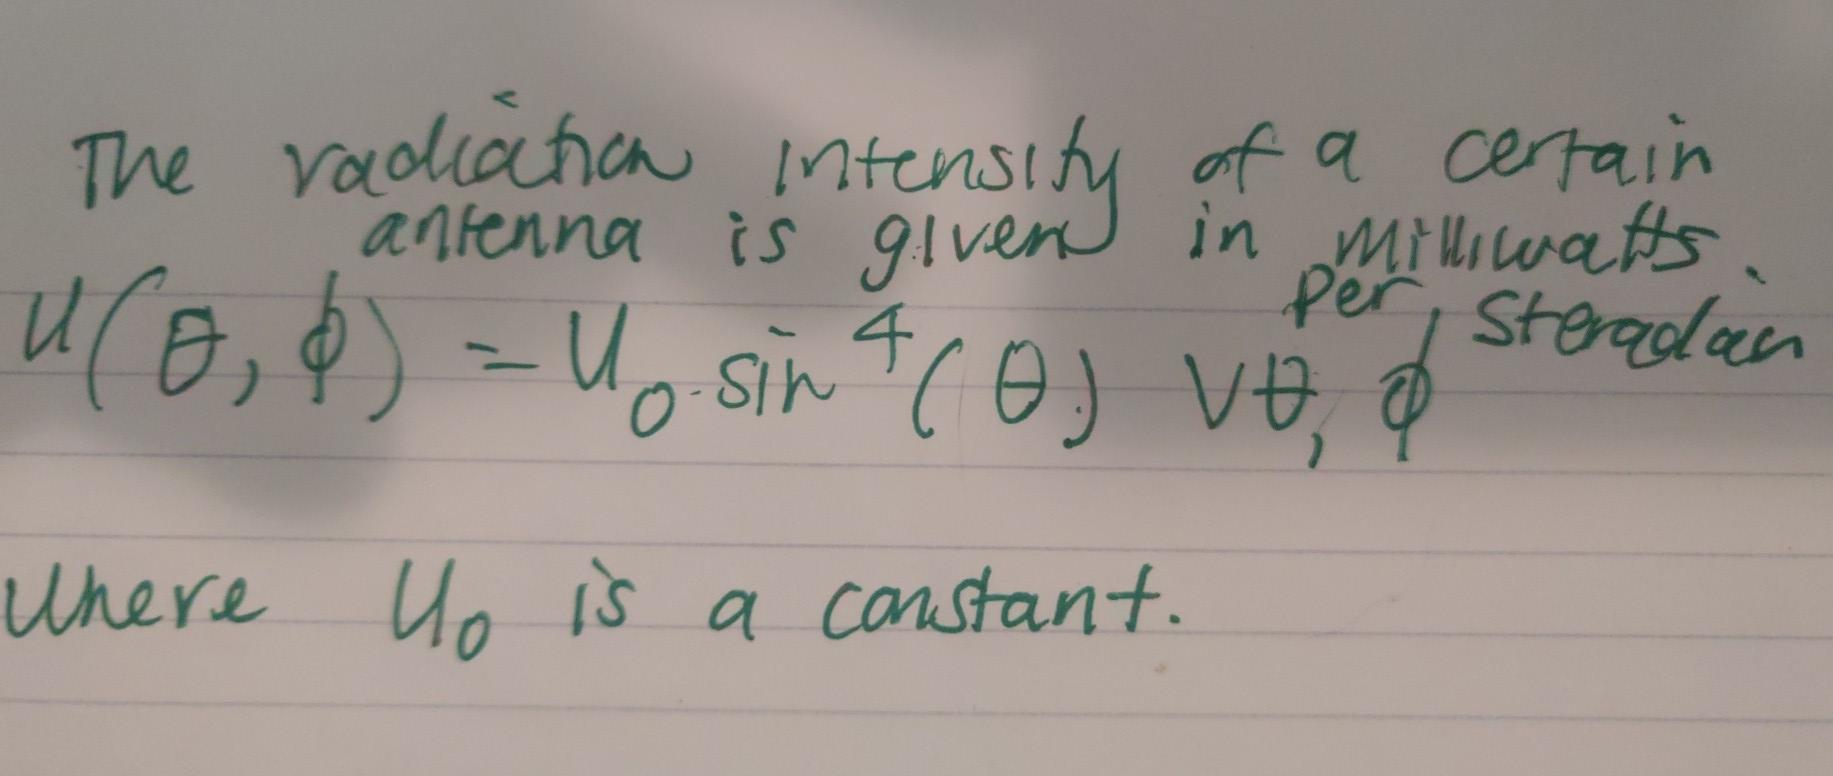 The radiation intensity of a certain
antenna is given in milliwatts.
per steradian
U(θ, ϕ) = U₀ sin⁴(θ) ∀θ, ϕ
Where U₀ is a constant.